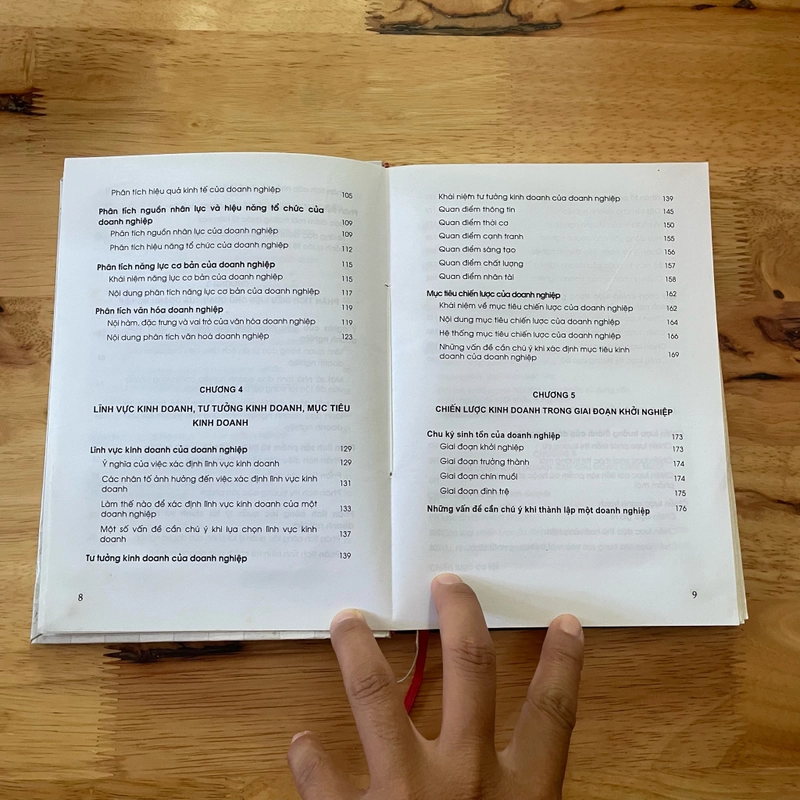 Phân tích hiệu quả kinh tế của doanh nghiệp 105
Phân tích nguồn nhân lực và hiệu năng tổ chức của
doanh nghiệp 109
Phân tích nguồn nhân lực của doanh nghiệp 109
Phân tích hiệu năng tổ chức của doanh nghiệp 112
Phân tích năng lực cơ bản của doanh nghiệp 115
Khái niệm năng lực cơ bản của doanh nghiệp 115
Nội dung phân tích năng lực cơ bản của doanh nghiệp 117
Phân tích văn hóa doanh nghiệp 119
Nội hàm, đặc trưng và vai trò của văn hóa doanh nghiệp 119
Nội dung phân tích văn hoá doanh nghiệp 123
CHƯƠNG 4
LĨNH VỰC KINH DOANH, TƯ TƯỞNG KINH DOANH, MỤC TIÊU
KINH DOANH
Lĩnh vực kinh doanh của doanh nghiệp 129
Ý nghĩa của việc xác định lĩnh vực kinh doanh 129
Các nhân tố ảnh hưởng đến việc xác định lĩnh vực kinh
doanh 131
Làm thế nào để xác định lĩnh vực kinh doanh của một
doanh nghiệp 133
Một số vấn đề cần chú ý khi lựa chọn lĩnh vực kinh
doanh 137
Tư tưởng kinh doanh của doanh nghiệp 139
8
Khái niệm tư tưởng kinh doanh của doanh nghiệp 139
Quan điểm thông tin 145
Quan điểm thời cơ 150
Quan điểm cạnh tranh 155
Quan điểm sáng tạo 156
Quan điểm chất lượng 157
Quan điểm nhân tài 158
Mục tiêu chiến lược của doanh nghiệp 162
Khái niệm về mục tiêu chiến lược của doanh nghiệp 162
Nội dung mục tiêu chiến lược của doanh nghiệp 164
Hệ thống mục tiêu chiến lược của doanh nghiệp 166
Những vấn đề cần chú ý khi xác định mục tiêu kinh
doanh của doanh nghiệp 169
CHƯƠNG 5
CHIẾN LƯỢC KINH DOANH TRONG GIAI ĐOẠN KHỞI NGHIỆP
Chu kỳ sinh tồn của doanh nghiệp 173
Giai đoạn khởi nghiệp 173
Giai đoạn trưởng thành 174
Giai đoạn chín muồi 174
Giai đoạn đình trệ 175
Những vấn đề cần chú ý khi thành lập một doanh nghiệp 176
9